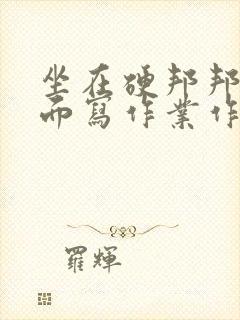 坐在硬邦邦
而寫作業作
羅輝